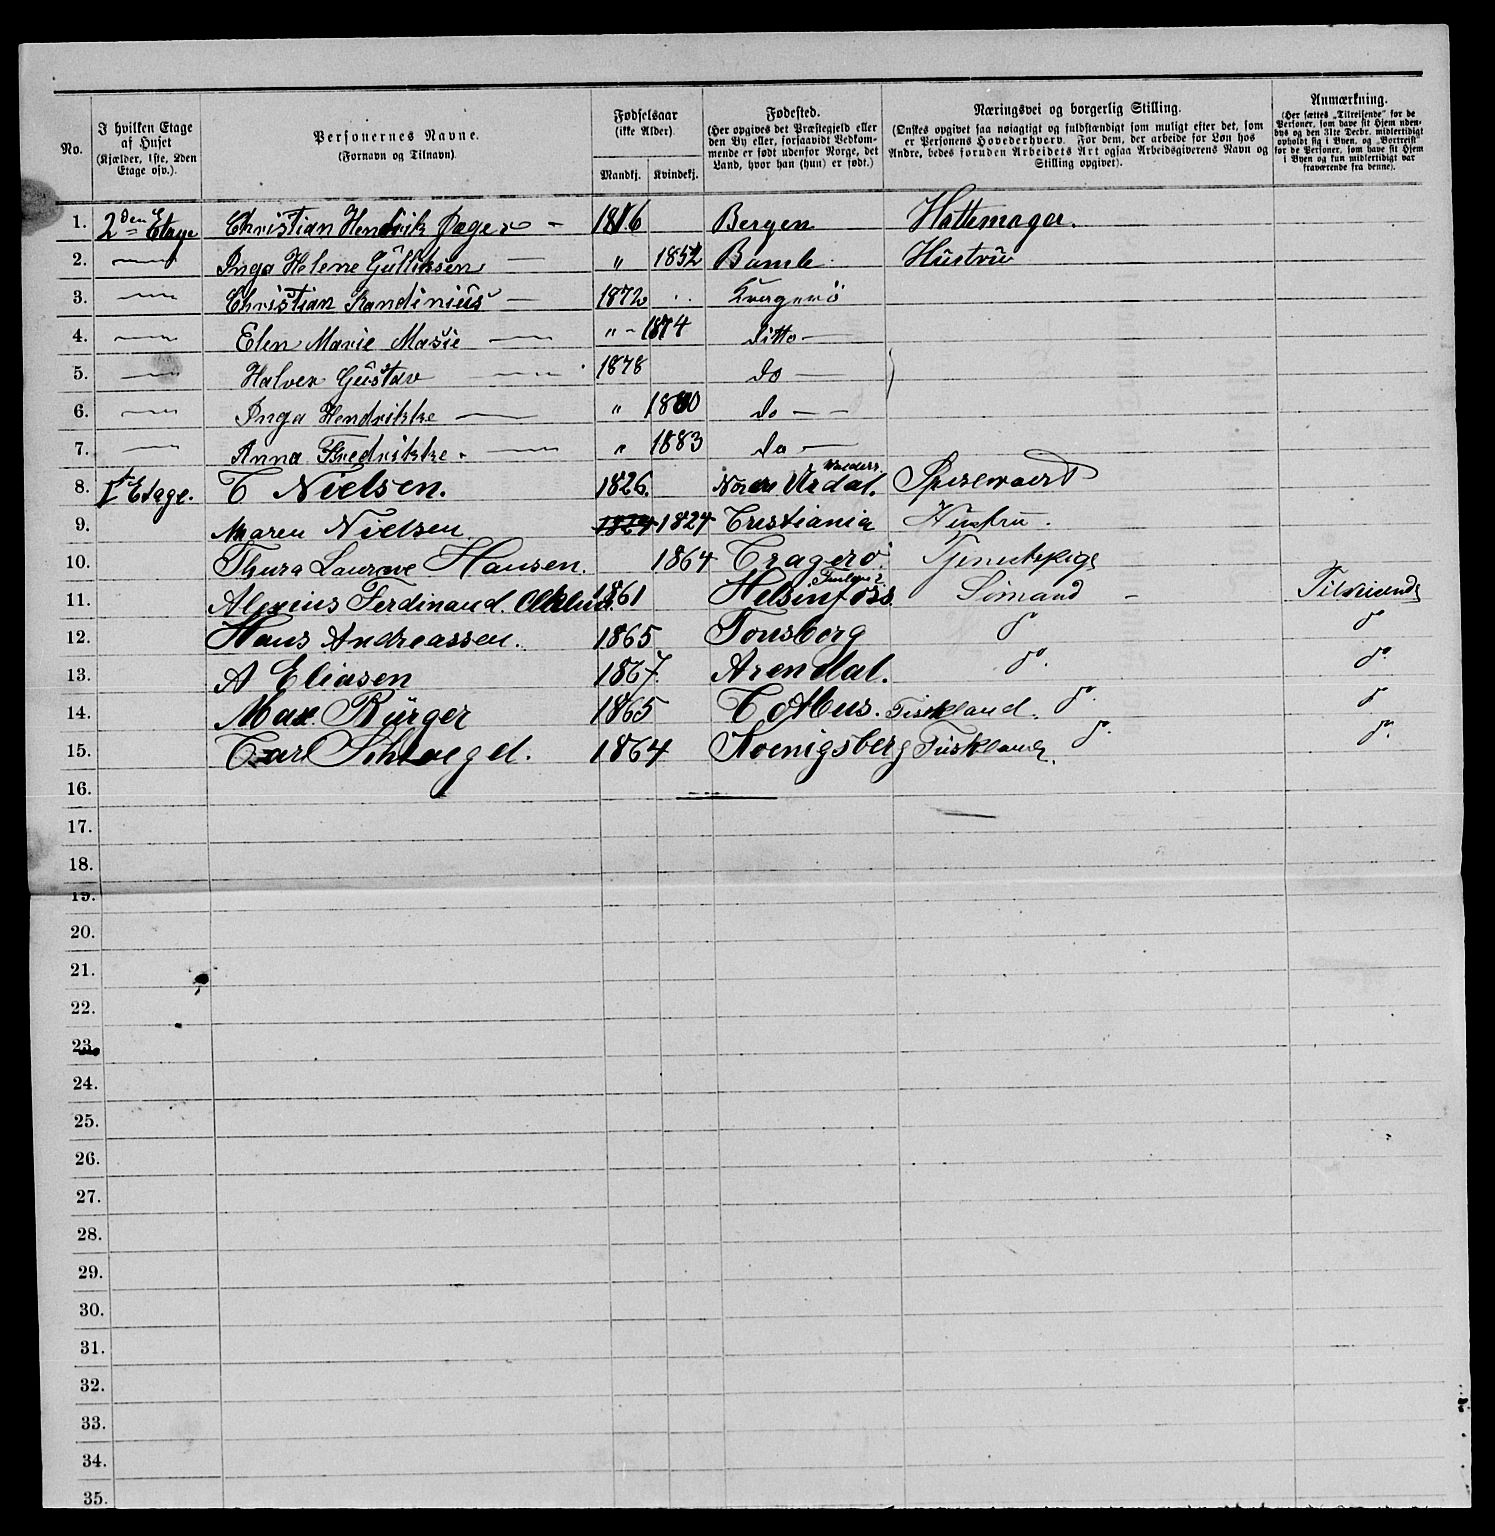 No.
I hvilken Etage af Huset (Kjælder, 1ste, 2den Etage osv.).
Personernes Navne. (Fornavn og Tilnavn)
Fødselsaar (ikke Alder)
Mandkj. Kvindekj.
Fødested. (Her opgives det Præstegjeld eller den By eller, forsaavidt Vedkommende er født udenfor Norge, det Land, hvor han (hun) er født.)
Næringsvei og borgerlig Stilling. (Ønskes opgivet saa nøiagtigt og fuldstændigt som muligt efter det, som er Personens Hovederhverv. For dem, der arbeide for Løn hos Andre, bedes foruden Arbeidets Art ogsaa Arbeidsgiverens Navn og Stilling opgivet).
Anmærkning. (Her sættes „Tilreisende" for de Personer, som have sit Hjem udenbys og den 31te Decbr. midlertidigt opholdt sig i Byen, og „Bortreist" for de Personer, som have sit Hjem i Byen og kun midlertidigt var fraværende fra denne).
1. 2den Etage Christian Hendrik Jæger – 1816 Bergen Hattemager.
2. — Inga Helene Gulliksen — „ 1852 Bamle Hustru
3. — Christian Randinius — 1872 Kragerö
4. — Elen Marie Masie — „ - 1874 ditto —
5. — Halvor Gustav — 1878 do —
6. — Inga Hendrikke — „ 1880 do — —
7. — Anna Fredrikke. — „ 1883 do —
8. 1ste Etage. C Nielsen. 1826. Nordre Urdal. Valders Spisevært
9. Maren Nielsen 1824 1824 Cristiania Hustru.
10. Thura Laurine Hansen. 1864 Cragerö. Tjenestepige
11. Alexius Ferdinand 1861 Helsinfors Sömand – Tilreisende
12. Hans Andreassen. 1865 Tonsberg do do
13. A Eliasen 1867. Arendal. do. do.
14. Max Bürger 1865 Cottbus. Tiskland. do. do
15. Carl Schloegel. 1864 Koenigsberg Tiskland. do. do.
16.
17.
18.
19.
20.
21.
22.
23.
24.
25.
26.
27.
28.
29.
30.
31.
32.
33.
34.
35.